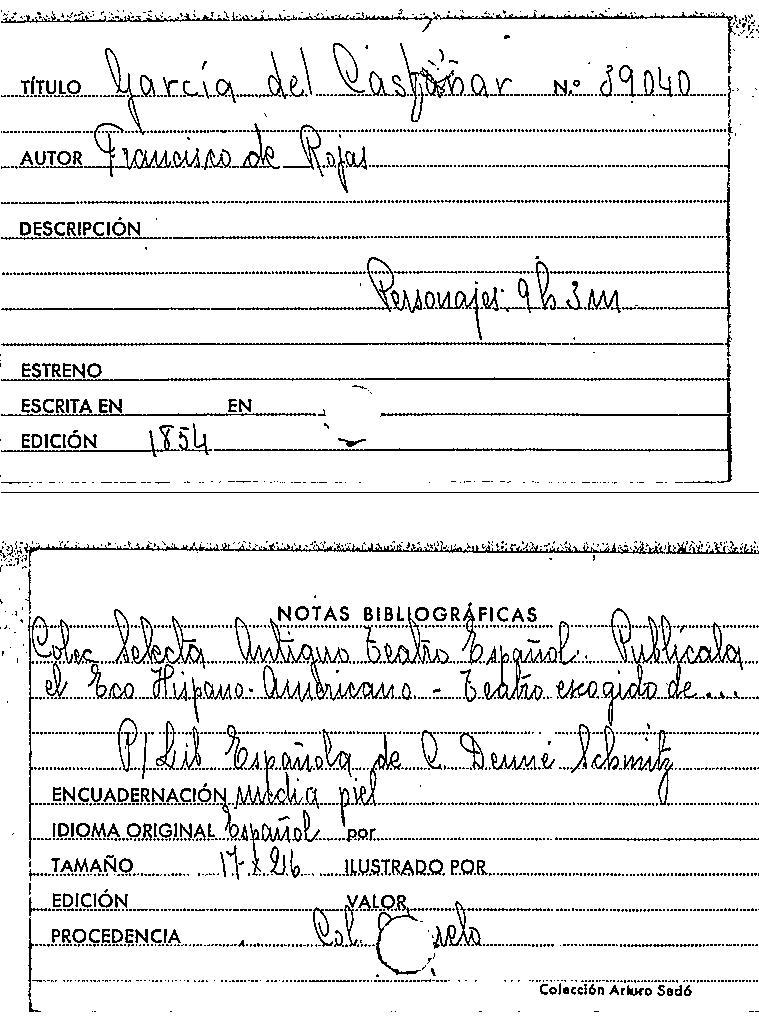 TÍTULO García del Castañar N.º 39040
AUTOR Francisco de Rojas
DESCRIPCIÓN
Personajes: 9 h 3 m
ESTRENO
ESCRITA EN EN
EDICIÓN 1854
NOTAS BIBLIOGRÁFICAS
Colec Selecta Antiguo Teatro Español. Publícala
el Eco Hispano-Americano - Teatro escogido de...
P/ Lib Española de C. Denné Schmitz
ENCUADERNACIÓN media piel
IDIOMA ORIGINAL Español por
TAMAÑO 17 x 26 ILUSTRADO POR
EDICIÓN VALOR
PROCEDENCIA Col.
Colección Arturo Sedó